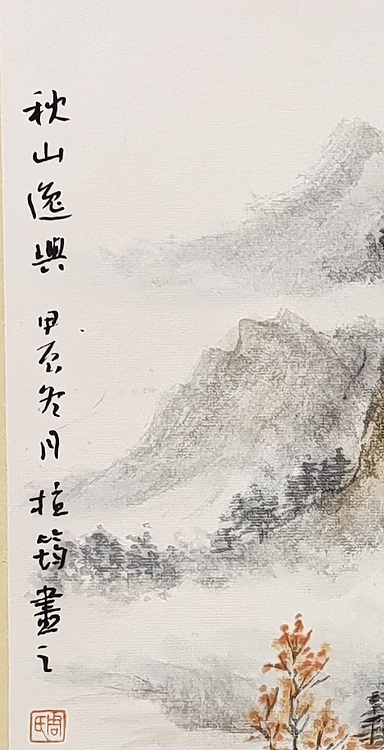 秋山逸興 甲辰冬月桂筠畫之